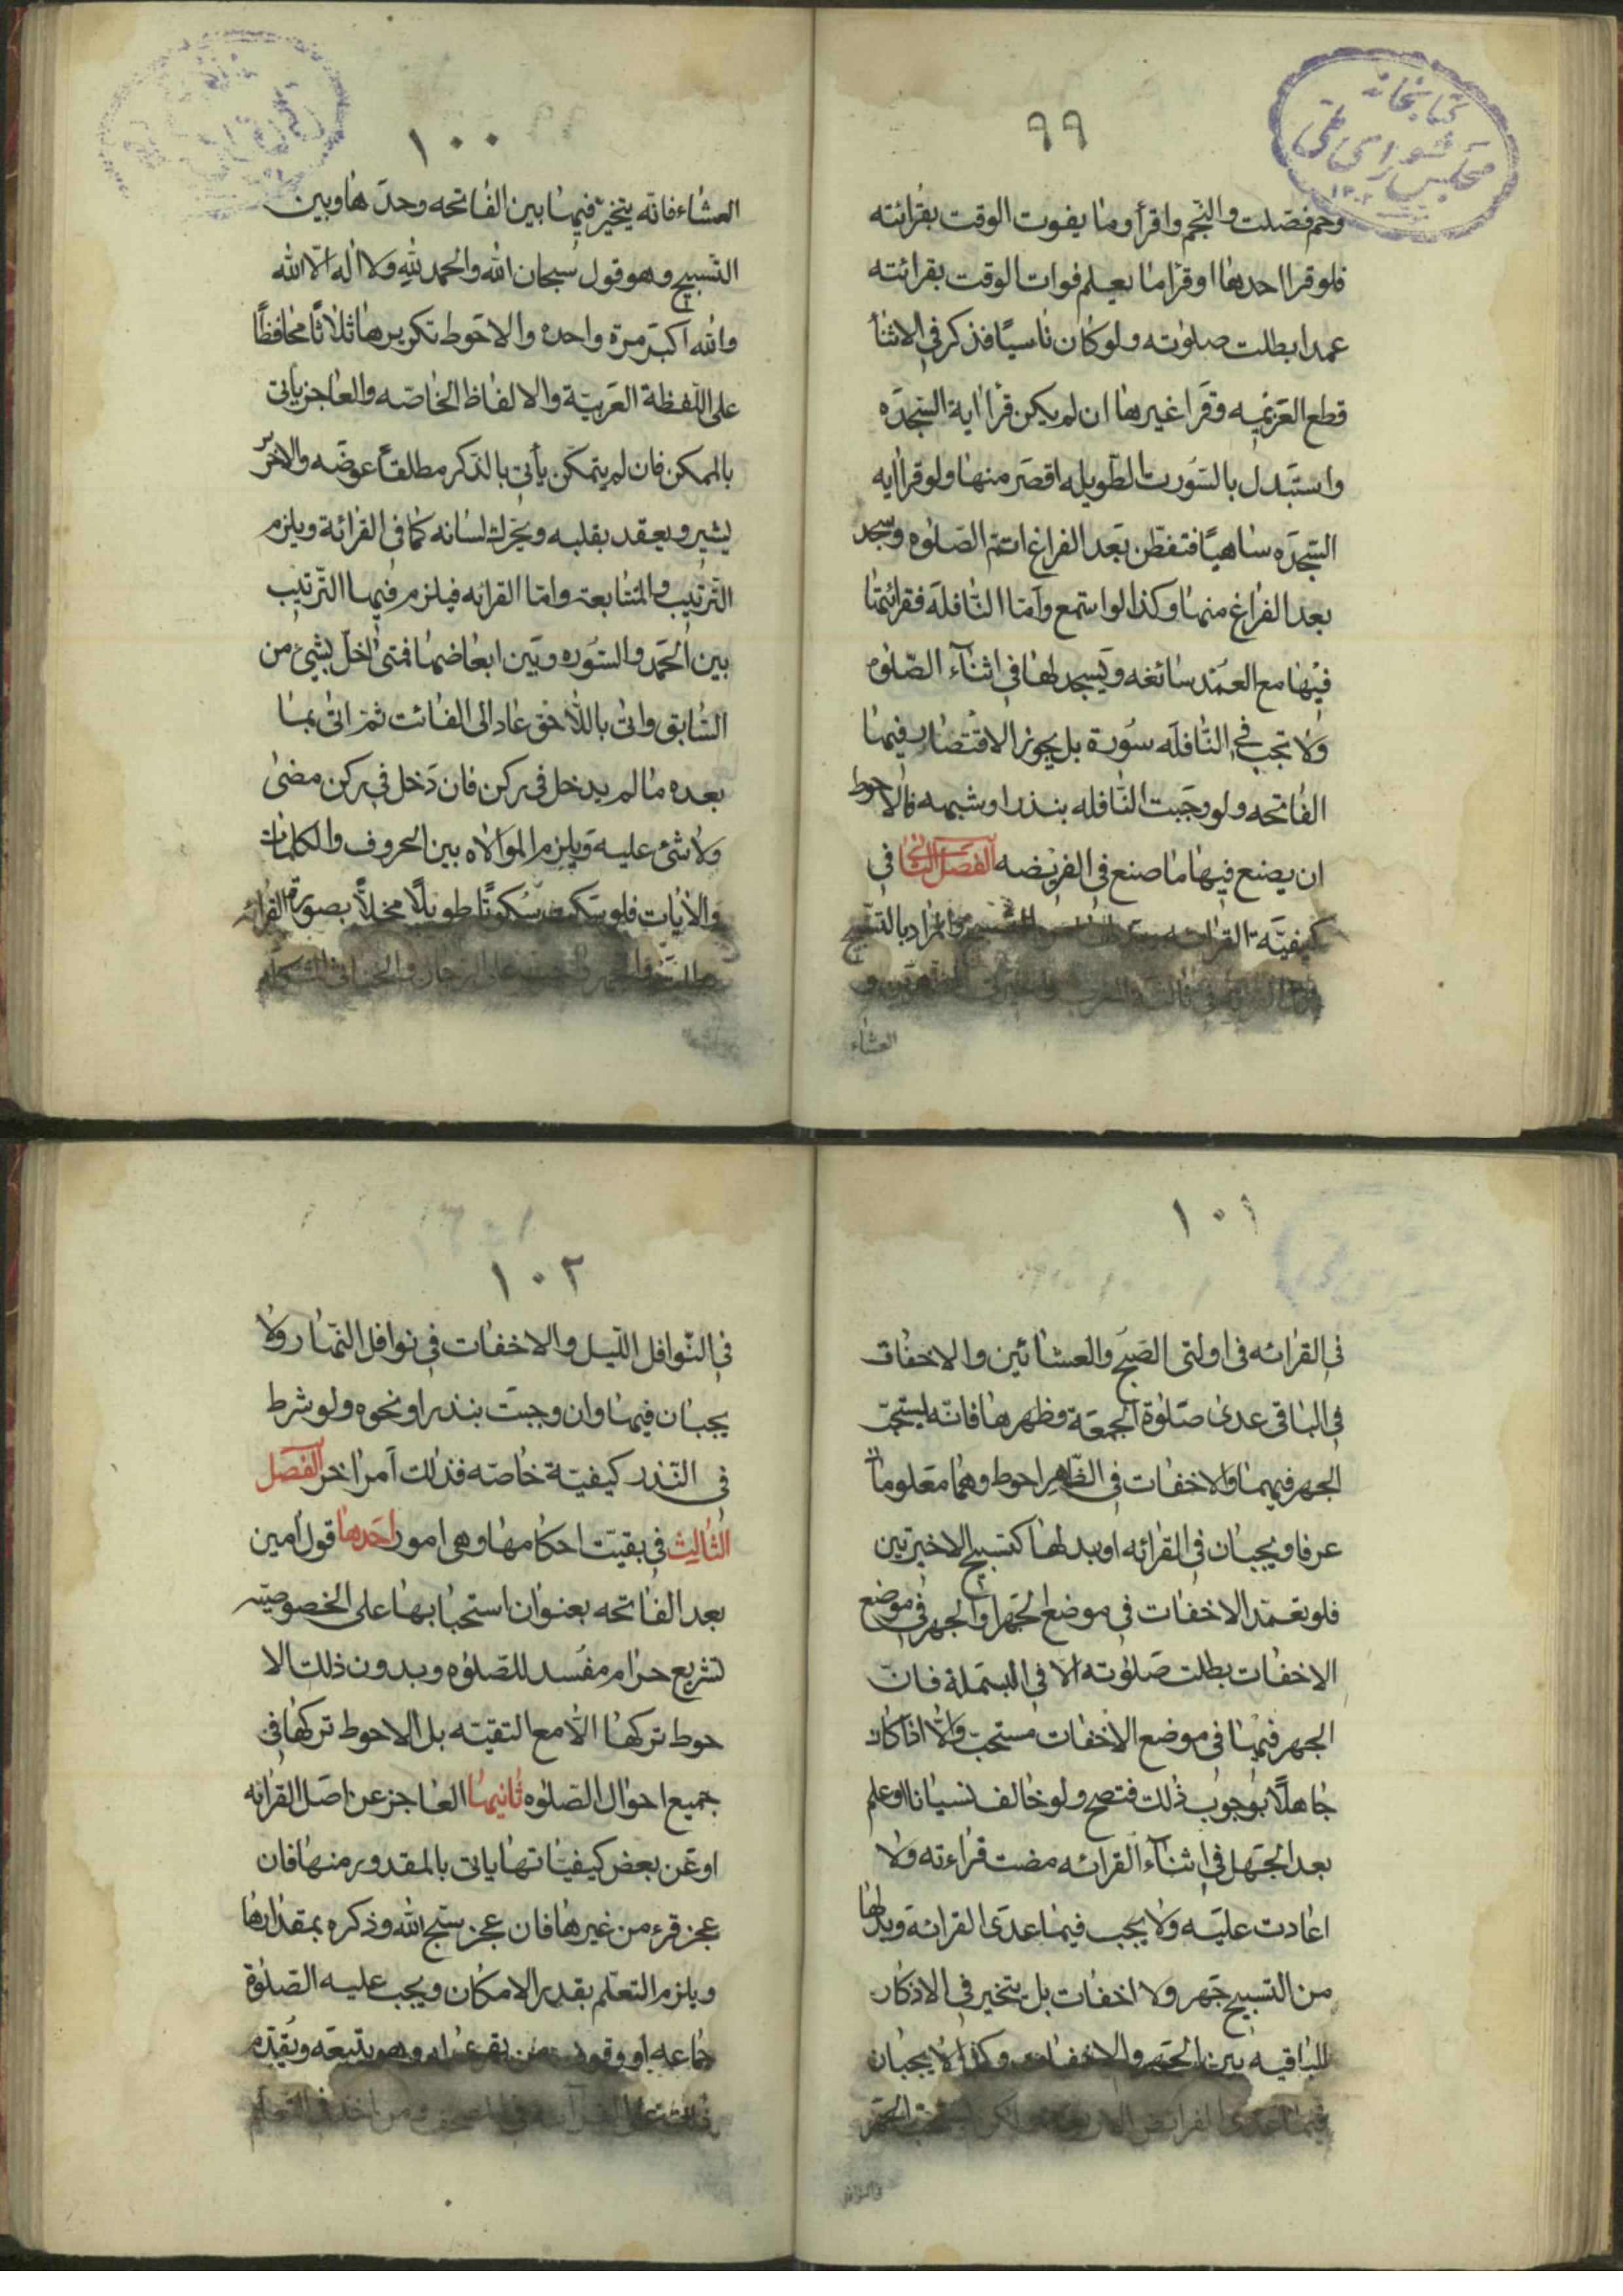 كتابخانه
مجلس شورای ملی
٩٩
وحم فصلت والنجم واقرأ وما يفوت الوقت بقرائته
فلو قرا احدها او قرا ما يعلم فوات الوقت بقرائته
عمدا بطلت صلوته ولو كان ناسيًا فذكر في الاثنأ
قطع العزيمه وقرا غيرها ان لم يكن قرأ اية السجده
واستبدل بالسورت الطويله اقصر منها ولو قرا ايه
السجده ساهيًا فتفطن بعد الفراغ اتمّ الصّلوه وسجد
بعد الفراغ منها وكذا لو استمع وامّا النافله فقرائتها
فيها مع العمد سائغه ويسجد لها في اثنآء الصّلوه
ولا تجب في النّافله سورة بل يجوز الاقتصار فيها
الفاتحه ولو وجبت النافله بنذر او شبهه فالاحوط
ان يصنع فيها ما صنع في الفريضه الفصل الثاني في
كيفيّة القرائه والمراد بالتسبيح
العشاء
١٠٠
العشاء فانّه يتخيّر فيها بين الفاتحه وحدها وبين
التّسبيح وهو قول سبحان الله والحمد لله ولا اله الّا الله
والله اكبر مرة واحده والاحوط تكريرها ثلاثًا محافظًا
على اللّفظة العربيّة والالفاظ الخاصّه والعاجز ياتى
بالممكن فان لم يتمكّن يأتى بالذّكر مطلقًا عوضه والاخرس
يشير ويعقد بقلبه ويحّرك لسانه كما فى القرائة ويلزم
الترتيب والمتابعة وامّا القرائه فيلزم فيها التّرتيب
بين الحمد والسّوره وبين ابعاضها فمتى اخلّ بشيئ من
السّابق واتى باللّاحق عاد الى الفائت ثمّ اتى بما
بعده ما لم يدخل فى ركن فان دخل فى ركن مضى
ولا شئ عليه ويلزم الموالاه بين الحروف والكلمات
والايات فلو سكت سكوتًا طويلًا مخلًّا بصورة القرائه
بطلت والجهر واجب على الرجال
١٠١
فى القرائه فى اولتى الصبح والعشائين والاخفات
فى الباقى عدى صلوة الجمعة وظهرها فانّه يستحبّ
الجهر فيهما والاخفات فى الظّاهر احوط وهما معلومان
عرفا ويجبان فى القرائه او بدلها كتسبيح الاخيرتين
فلو تعمّد الاخفات فى موضع الجهر او الجهر فى موضع
الاخفات بطلت صلوته الا فى البسملة فانّ
الجهر فيها فى موضع الاخفات مستحبّ والّا اذا كان
جاهلًا بوجوب ذلك فتصح ولو خالف نسيانا او علم
بعد الجهل فى اثنآء القرائه مضت قراءته ولا
اعادت عليه ولا يجب فيما عدى القرائة وبدلها
من التسبيح جهر ولا اخفات بل يتخير فى الاذكار
الباقيه بين الجهر والاخفات وكذا لا يجبان
فيما عدى الفرائض يستحب الجهر
فى النوافل
١٠٢
فى النّوافل اللّيل والاخفات فى نوافل النّهار ولا
يجبان فيها وان وجبت بنذر او نحوه ولو شرط
فى النّذر كيفيّة خاصّه فذلك آمر اخر الفصل
الثالث فى بقيّت احكامها وهى امور احدها قول امين
بعد الفاتحه بعنوان استحبابها على الخصوصيّه
تشريع حرام مفسد للصّلوه وبدون ذلك الا
حوط تركها الّا مع التقيّه بل الاحوط تركها فى
جميع احوال الصّلوه ثانيها العاجز عن اصل القرائه
او عن بعض كيفيّاتها ياتى بالمقدور منها فان
عجز قرء من غيرها فان عجز سبّح الله وذكره بمقدارها
ويلزم التعلّم بقدر الامكان ويجب عليه الصّلوة
جماعه او وقوف من يقرء له وهو يتبعه ويقدّم
ذلك على القرائه فى المصحف ومن اخذ فى التعلّم